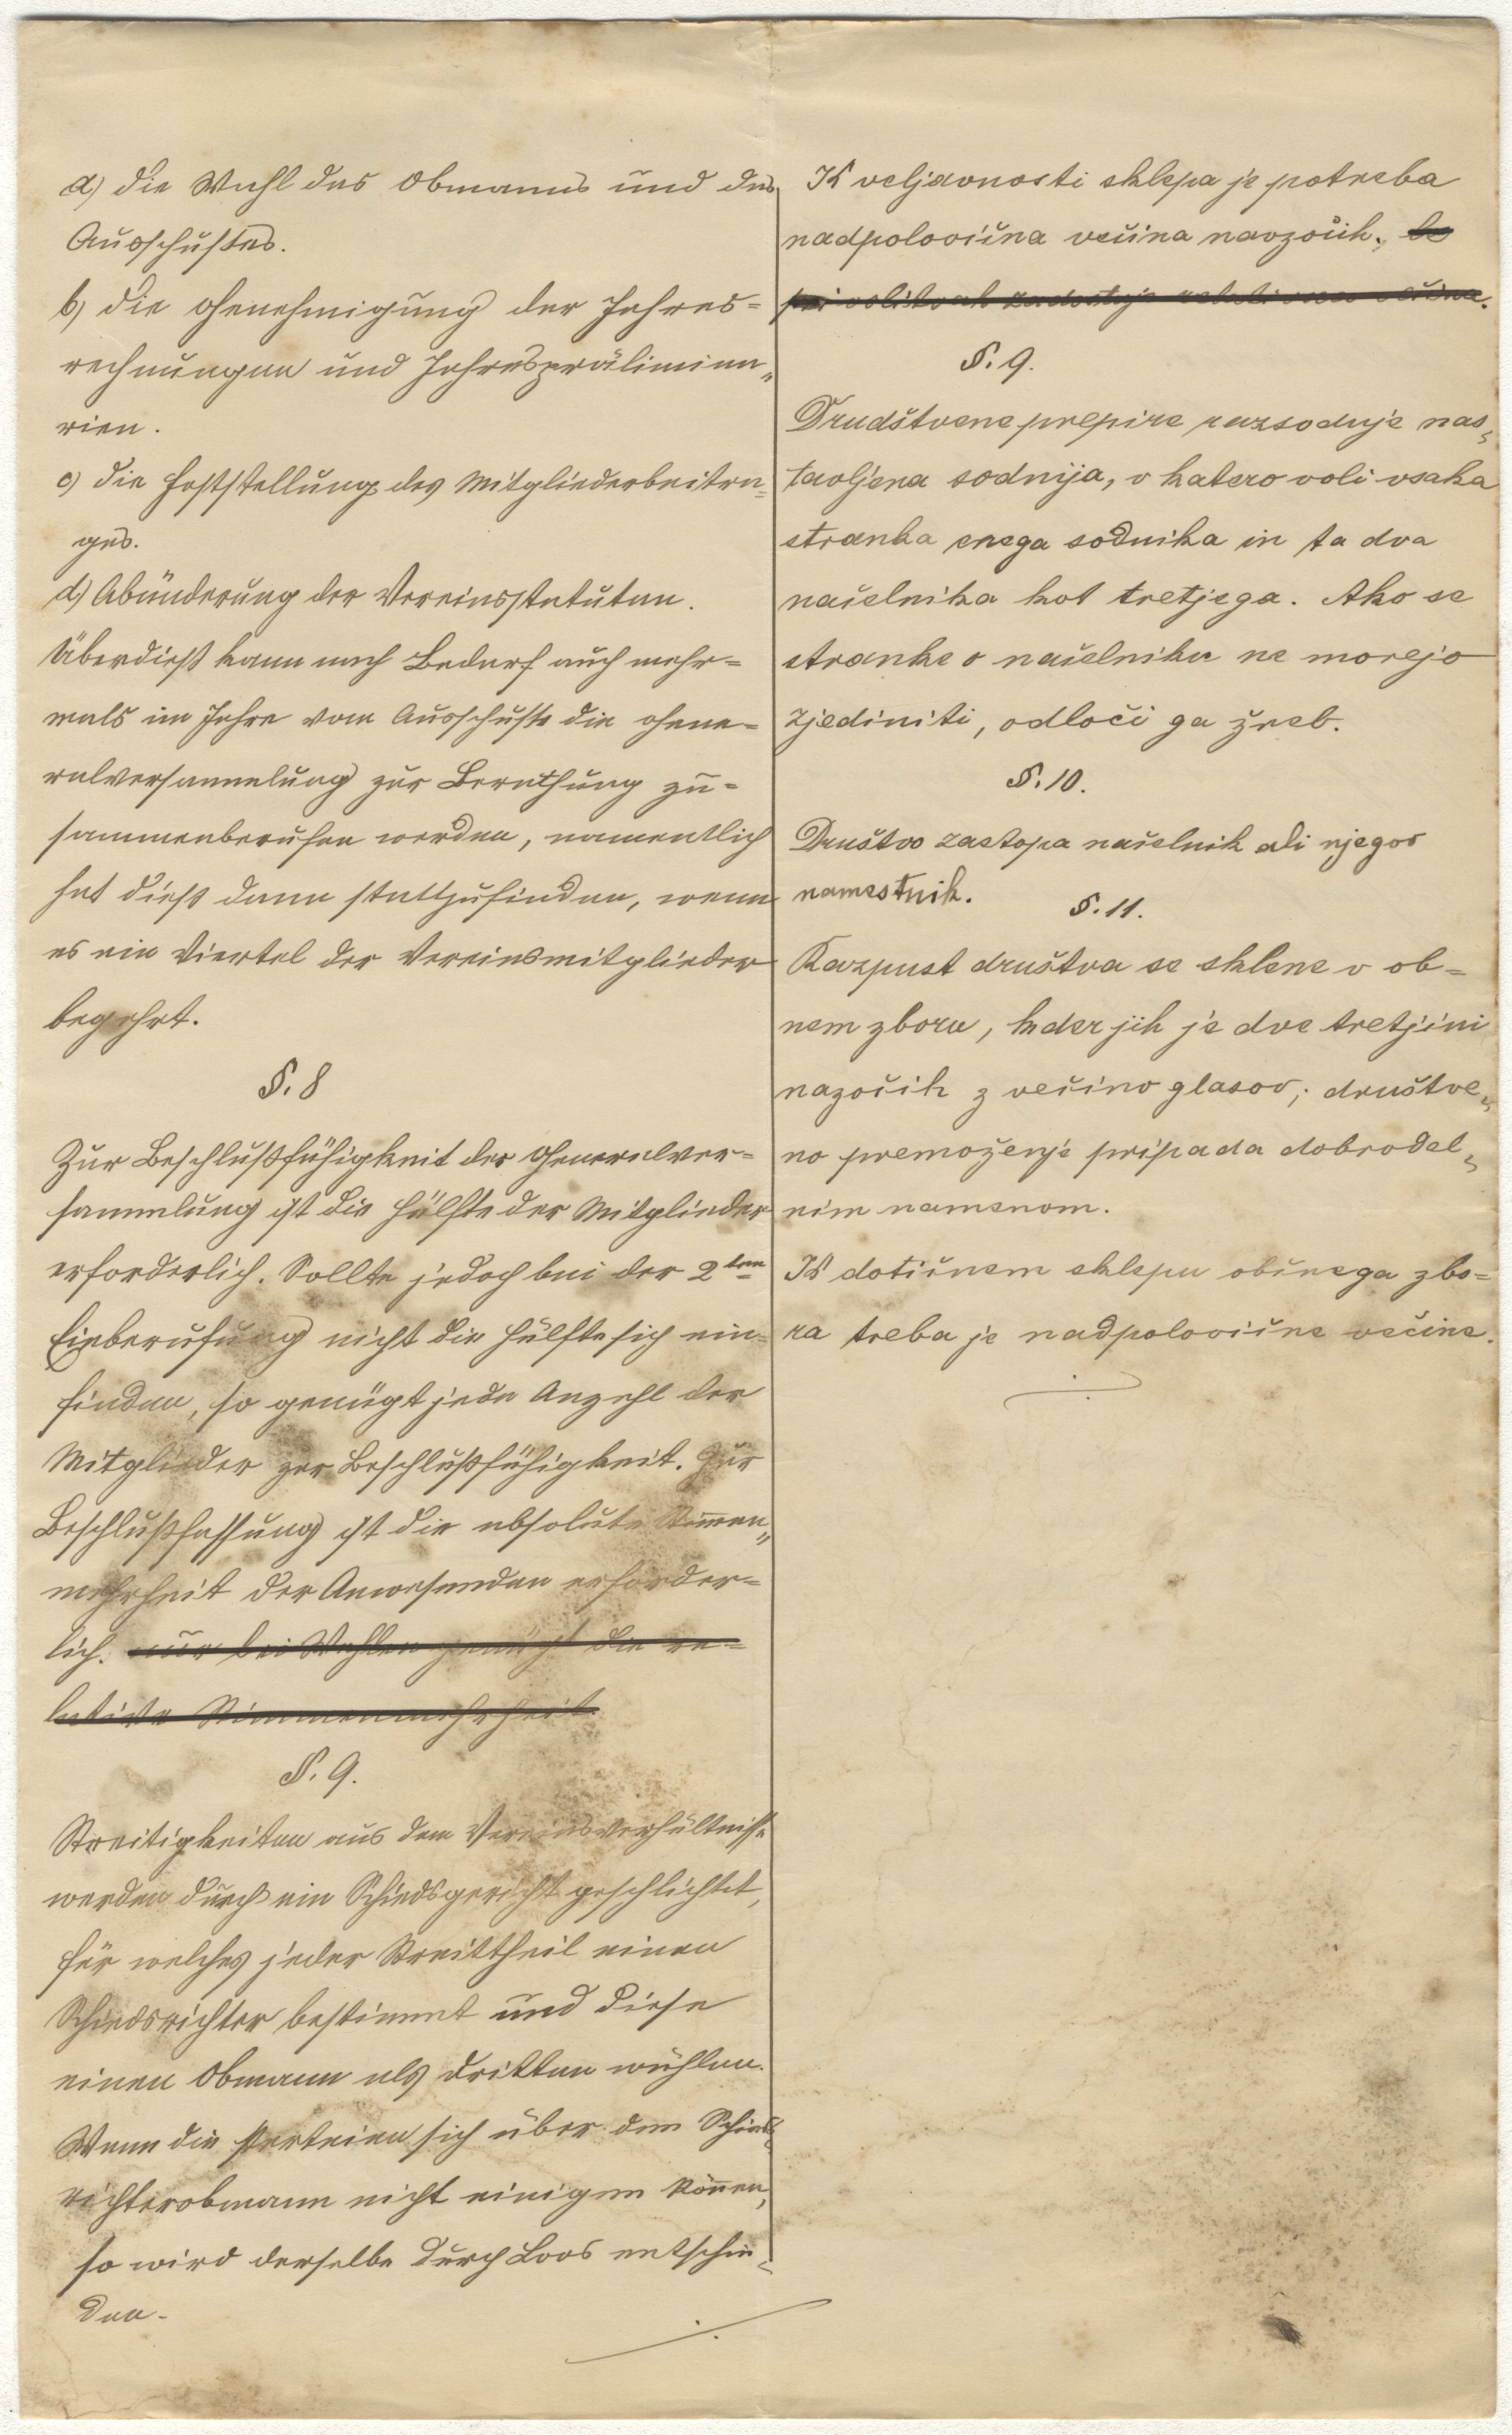 a) die Wahl des Obmanns und des
Ausschußes.
b) die Genehmigung der Jahres=
rechnungen und Jahrespräliminа„
rien.
c) die Feststellung des Mitgliederbeitra=
ges.
d) Abänderung der Vereinsstatuten.
Überdieß kann nach Bedarf auch mehr=
mals im Jahre vom Ausschuße die Gene=
ralversammlung zur Berathung zu=
sammenberufen werden, namentlich
hat dieß dann stattzufinden, wenn
es ein Viertel der Vereinsmitglieder
begehrt.
§. 8
Zur Beschlußfähigkeit der Generalver=
sammlung ist die Hälfte der Mitglieder
erforderlich. Sollte jedoch bei der 2ten
Einberufung nicht die Hälfte sich ein=
finden, so genügt jede Anzahl der
Mitglieder zur Beschlußfähigkeit. Zur
Beschlußfassung ist die absolute Stimmen„
mehrheit der Anwesenden erforder=
lich. nur bei Wahlen genügt die re=
lative Stimmenmehrheit.
§. 9.
Streitigkeiten aus dem Vereinsverhältniße
werden durch ein Schiedsgericht geschlichtet,
für welches jeder Streittheil einen
Schiedsrichter bestimmt und diese
einen Obmann als dritten wählen.
Wenn die Parteien sich über den Schieds„
richterobmann nicht einigen können,
so wird derselbe durch Loos entschie„
den.
K veljavnosti sklepa je potreba
nadpolovična večina navzočih. le
pri volitvah zadostuje relativna večina.
§. 9.
Drudštvene prepire razsoduje nas„
tavljena sodnija, v katero voli vsaka
stranka enega sodnika in ta dva
načelnika kot tretjega. Ako se
stranke o načelniku ne morejo
zjediniti, odloči ga žreb.
§. 10.
Društvo zastopa načelnik ali njegov
namestnik.
§. 11.
Razpust društva se sklene v ob=
nem zboru, kder jih je dve tretjini
nazočih z večino glasov; društve„
no premoženje pripada dobrodel„
nim namenom.
K dotičnem sklepu občnega zbo=
ra treba je nadpolovične večine.